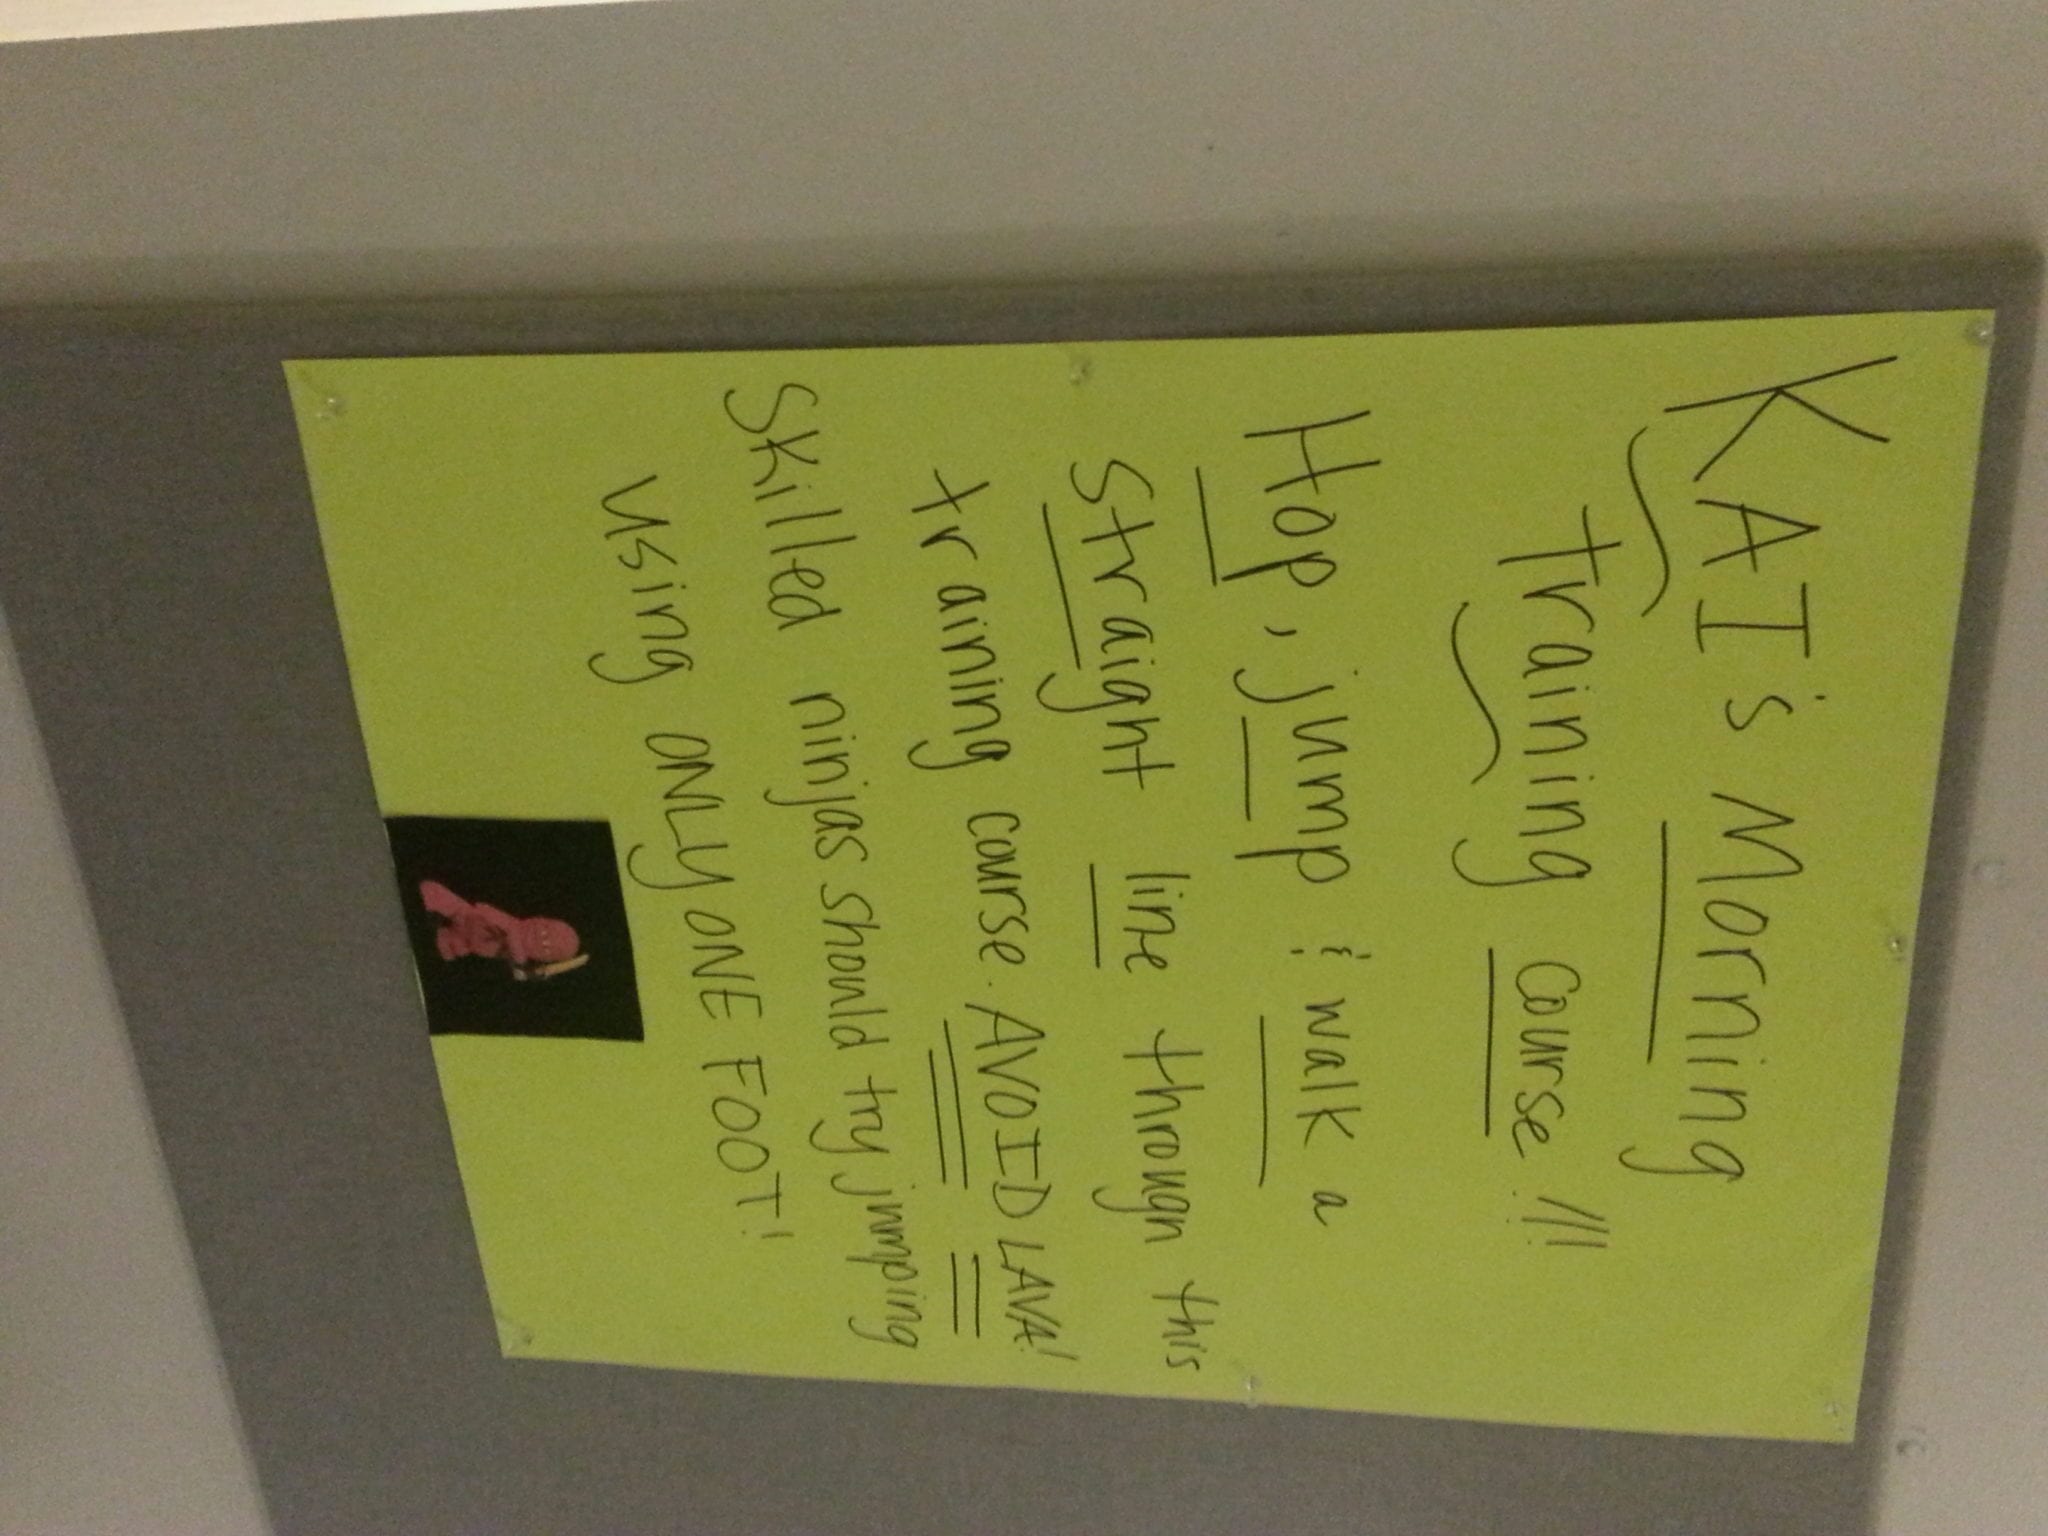 KAI's Morning
Training Course!!!
Hop, jump & walk a
straight line through this
training course. AVOID LAVA!
Skilled ninjas should try jumping
using ONLY ONE FOOT!